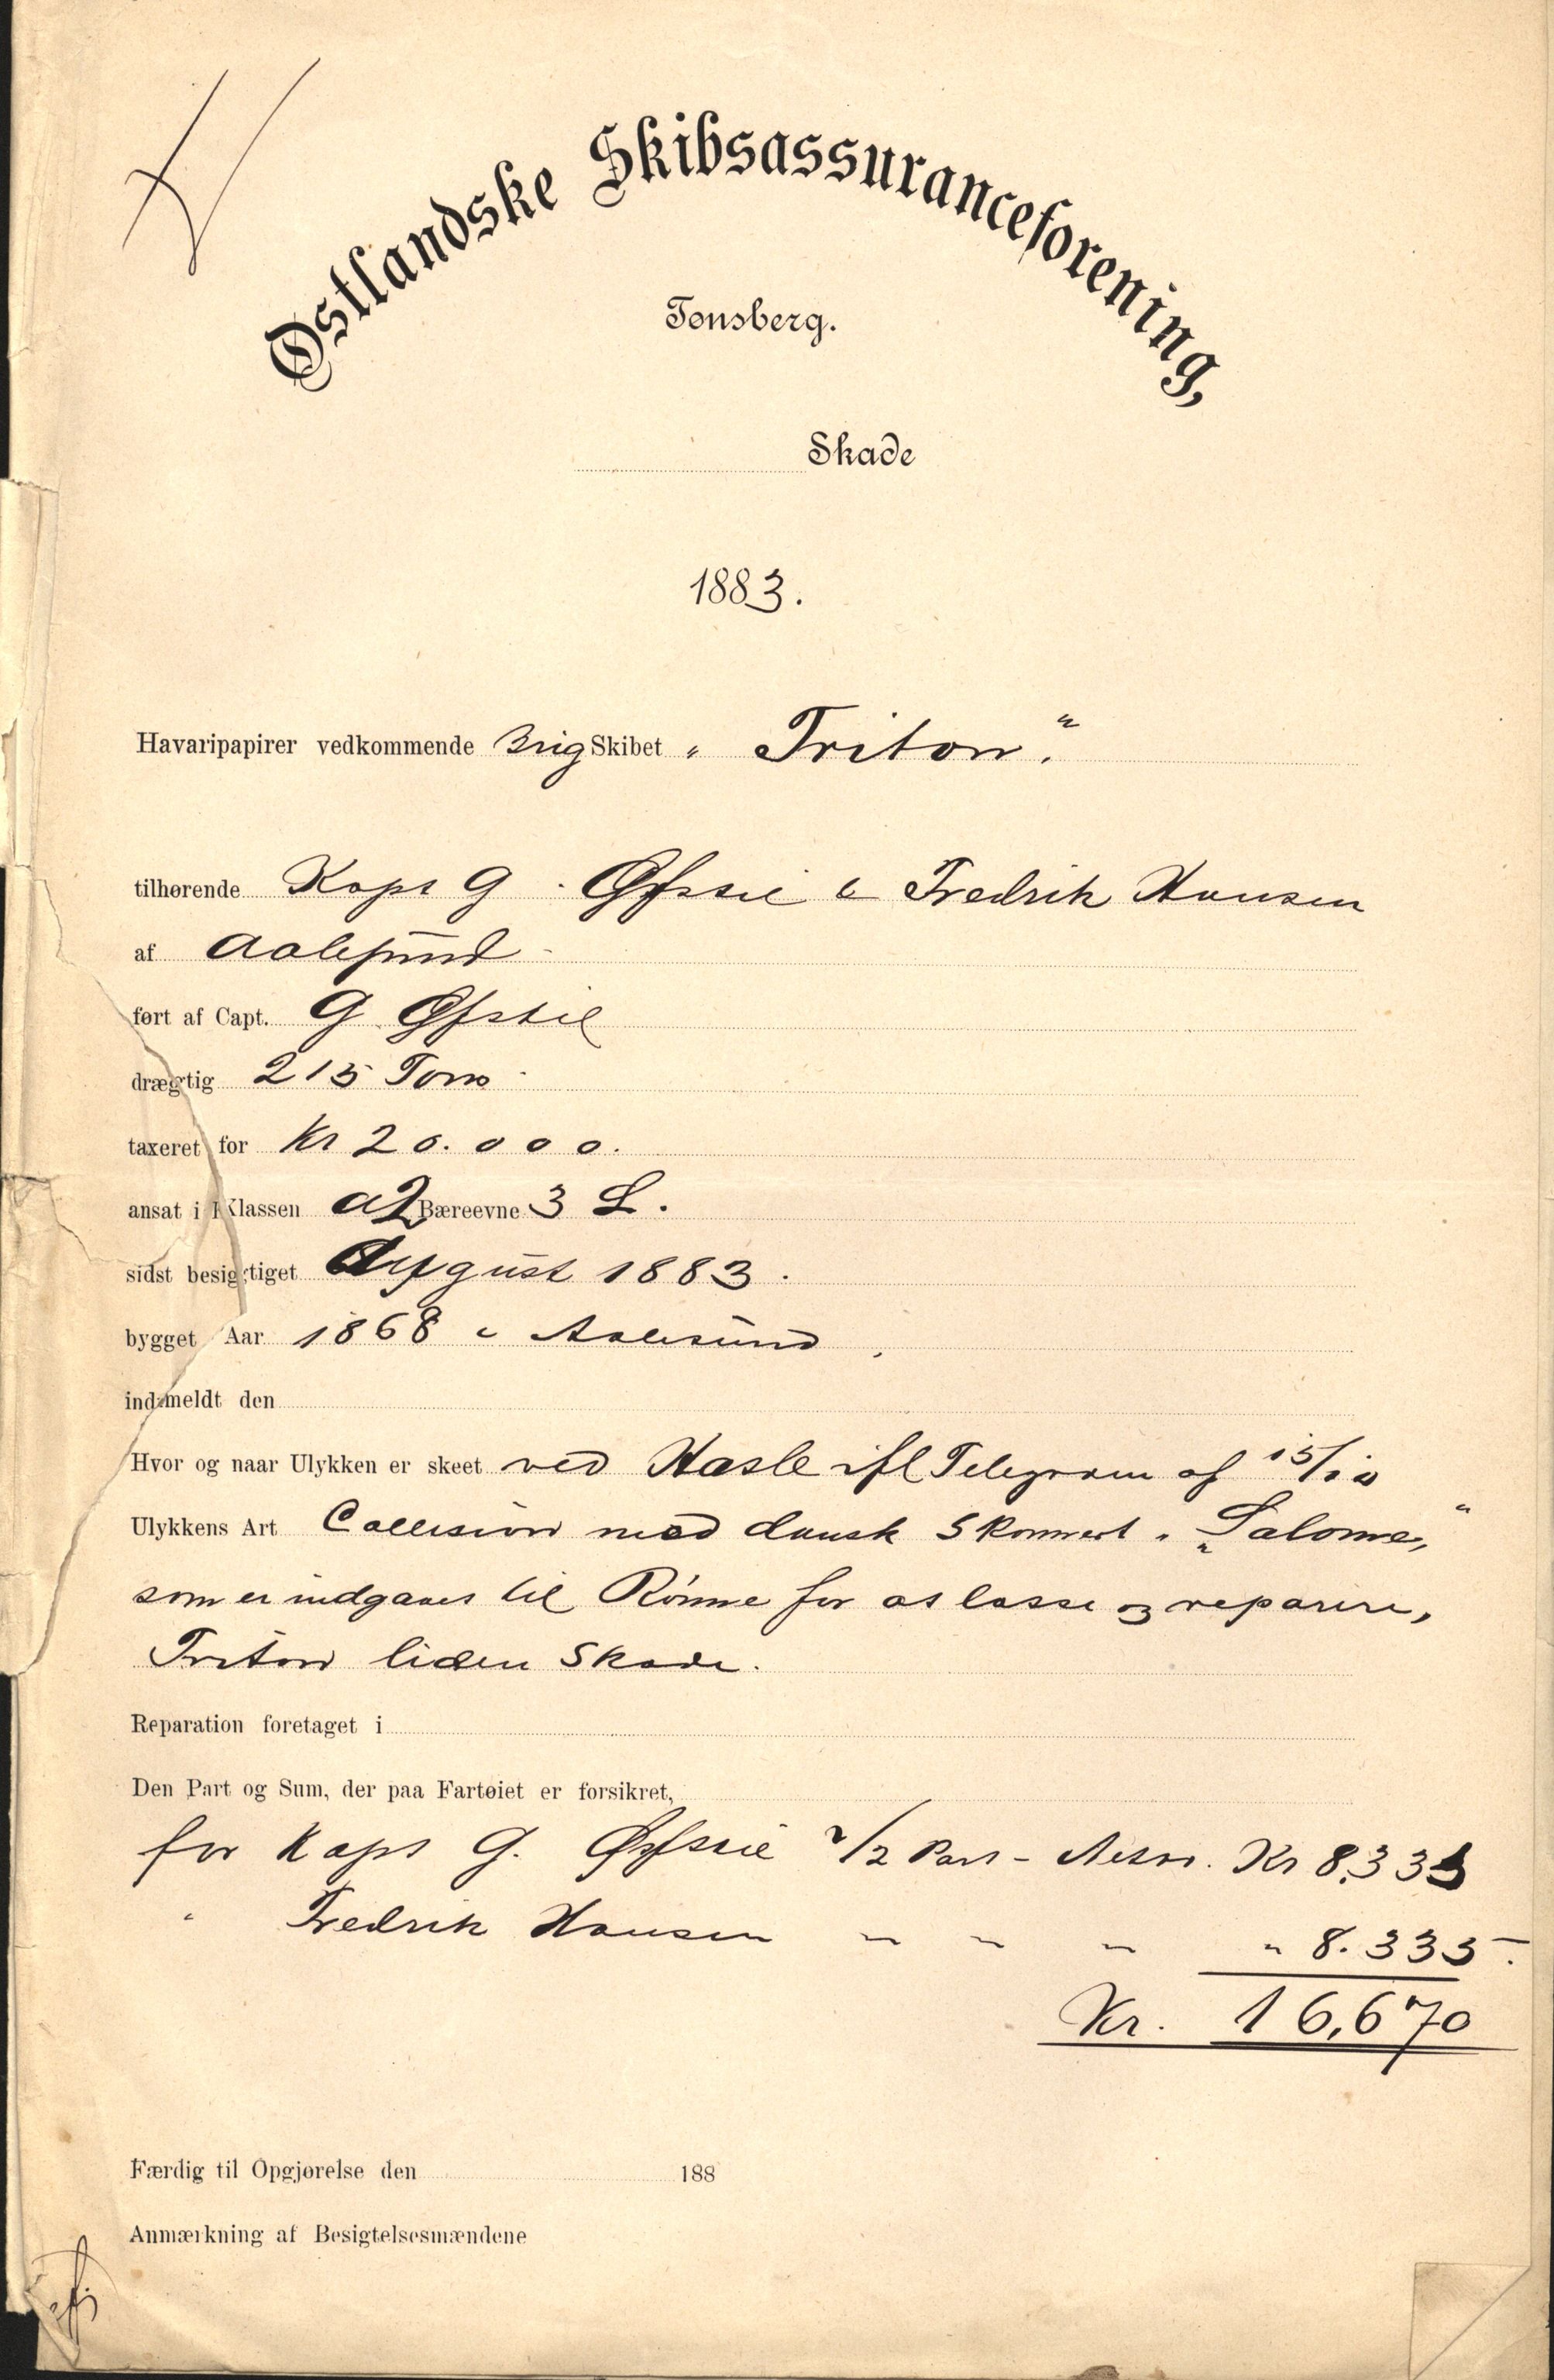 Østlandske Skibsassuranceforening,
Tønsberg.
Skade
1883.
Havaripapirer vedkommende Brig Skibet „ Triton“.
tilhørende Kapt G. Øfstie & Fredrik Hansen
af Aalesund
ført af Capt. G Øfstie
drægtig 215 Tons
taxeret for Kr 20.000.
ansat i Klassen A2 Bæreevne 3 L.
sidst besigtiget August 1883.
bygget Aar 1868 i Aalesund.
indmeldt den
Hvor og naar Ulykken er skeet ved Hasle ifl Telegram af 15/10
Ulykkens Art Collision med dansk Skonnert „Salome“,
som er indgaaet til Rönne for at losse og reparere,
Triton liden Skade.
Reparation foretaget i
Den Part og Sum, der paa Fartøiet er forsikret,
for Kapt G. Øfstie 1/2 Part - Kr 8.335
" Fredrik Hansen " " " " 8.335-.
Kr. 16,670
Færdig til Opgjørelse den 188
Anmærkning af Besigtelsesmændene